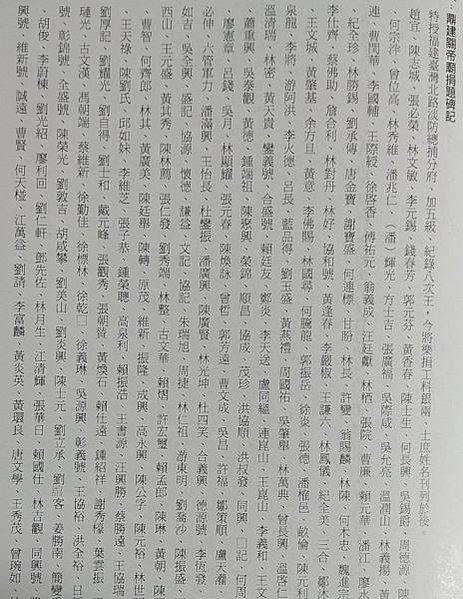 鼎建關帝廟捐題碑記
特授福建臺灣北路淡防總捕分府、加五級、紀錄八次王，今將樂捐工料銀兩、士庶姓名刊列於後。
趙宜、陳志城、張必榮、林文敏、李元錫、錢春芳、郭元芬、黃香春、陳士生、何長興、吳錫爵、周德源、陳
何宗泮、曾位高、林秀維、潘兆仁、（潘）輝光、方士吉、張廣福、吳際咸、吳允亮、溫潤山、林義揚、黃
連、曹閏華、李國輔、王際綬、徐啓香、傅祐元、翁義成、汪廷獻、林栖、張院、曹廉、賴元華、潘江、廖永
紀全珍、林勝錫、劉承傳、唐金寶、謝寶盛、何連標、甘盼、林長、許變、翁賜麟、林陳、何木忠、魏進宗
李仕齊、蔡佛助、詹合利、林對丹、林好、協和號、黃逢春、李嚴椒、王謙六、林鳳儀、紀全美、三合、鄒沐
王文城、黃肇基、余方旦、黃意、李佛賜、林國尋、何騰龍、郭振岳、徐炎、張德、潘樵邑、畝倫、陳元利
泉龍、李將、游阿洪、李火德、呂長、藍品得、劉玉盛、黃燕禮、周國祐、吳肇舉、林萬典、曾長興、溫啓仁
溫清瑞、林密、黃天貴、鑾義號、合盛號、賴廷友、鄭炎、李天送、盧同繼、連崑山、王崑山、李義和、王文
蕭重興、吳泰觀、黃德、鍾端祖、陳聚興、榮錦、順昌、協成、茂珍、洪協順、洪叔發、同興、□記、何周
廖憲章、呂錢、吳月、林顯耀、張元春、陳煥詠、曾哲、郭芳遠、曹文成、吳昌、許福、鄒策順、盧天灌
必伸、六管軍力、潘滿興、王怡長、杜鑾振、潘廣興、陳廣賢、林光坤、杜四笑、合義興、德源號、李恆發
如吉、吳全興、盛記、協源、懷德、謙益、文記、協記、朱瑞旭、周捷、林仁祖、游東明、劉喬沙、陳振盛
西山、王元盛、黃其秀、陳林蔫、張仁發、劉秀端、林整、古文華、賴熠、許宏璽、賴孟郎、陳琳、黃朝、陳
曹智、何齊郎、林其、黃廣美、陳廷舉、陳轉、原茂、維新、振隆、成興、高永興、陳公字、陳元裕、林世
王天祿、陳劉氏、邱如妹、李維芝、張子恭、鍾榮聰、高泉利、賴振浩、王書源、汪興勝、蔡勝遠、王協瑞
劉厚記、劉耀光、劉自得、劉士和、戴元峰、張觀秀、張朝質、黃煥石、賴仕遠、鍾紹祥、謝秀椽、葉雲振
璉光、古文漢、馮朝端、蔡維新、徐勤佳、徐標林、徐乾□、徐義琳、吳源興、彰義號、王協裕、洪全裕、日
號、彰錦號、全盛號、陳榮光、劉敦吉、胡咸攀、劉美山、劉炎興、陳士元、劉立承、姜勝南、簡變
、胡俊、李蔚棟、劉光紹、廖利回、劉仁軒、鄧先佐、林月生、江清輝、張華日、賴國仕、林吉觀、同興號
興號、維新號、誠遠、曹賢、何天極、江萬益、劉請、李富麟、黃炎英、黃環良、唐文學、王秀茂、曾琬如